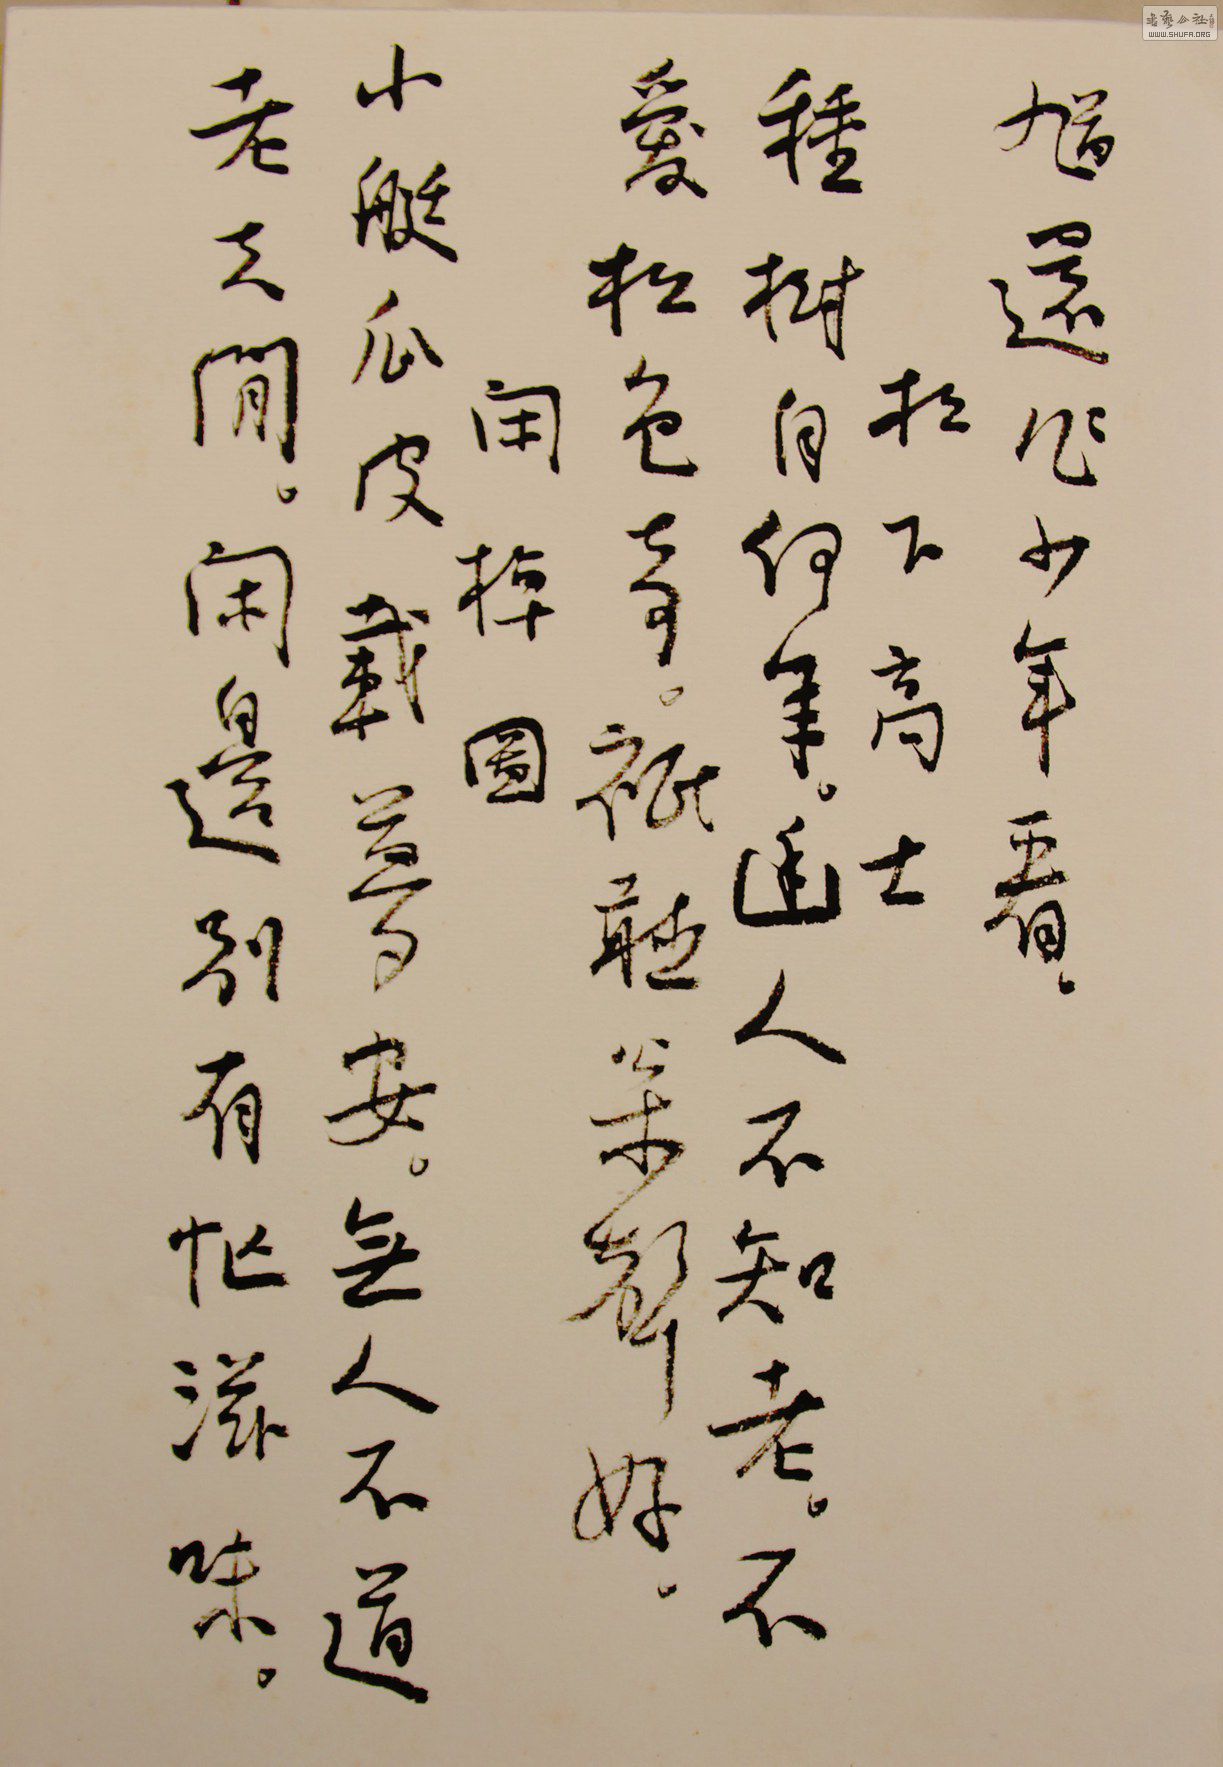 旭還作少年看。
松下高士
種樹自何年。逢人不知老。不
愛松色奇。祇聽葉聲好。
閑棹圖
小艇瓜皮載夢安。無人不道
老夫閒。閑邊別有忙滋味。
書藝公社
WWW.SHUFA.ORG